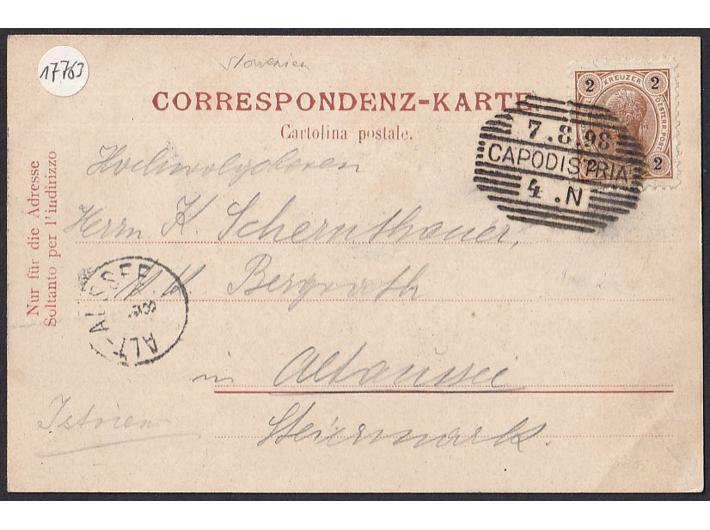 17763
Slowenien
CORRESPONDENZ-KARTE
Cartolina postale.
2 KREUZER 2
OESTERR. POST
2 2
7.8.98
CAPODISTRIA
4.N
Nur für die Adresse
Soltanto per l'indirizzo
Hochwolgeboren
Herrn K. Schernthanner,
k. k. Bergrath
in Altaussee
Steiermark.
Istrien
ALT-AUSSEE